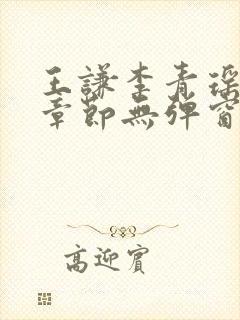 王謙李青瑶
章節無彈窗
高迎賓